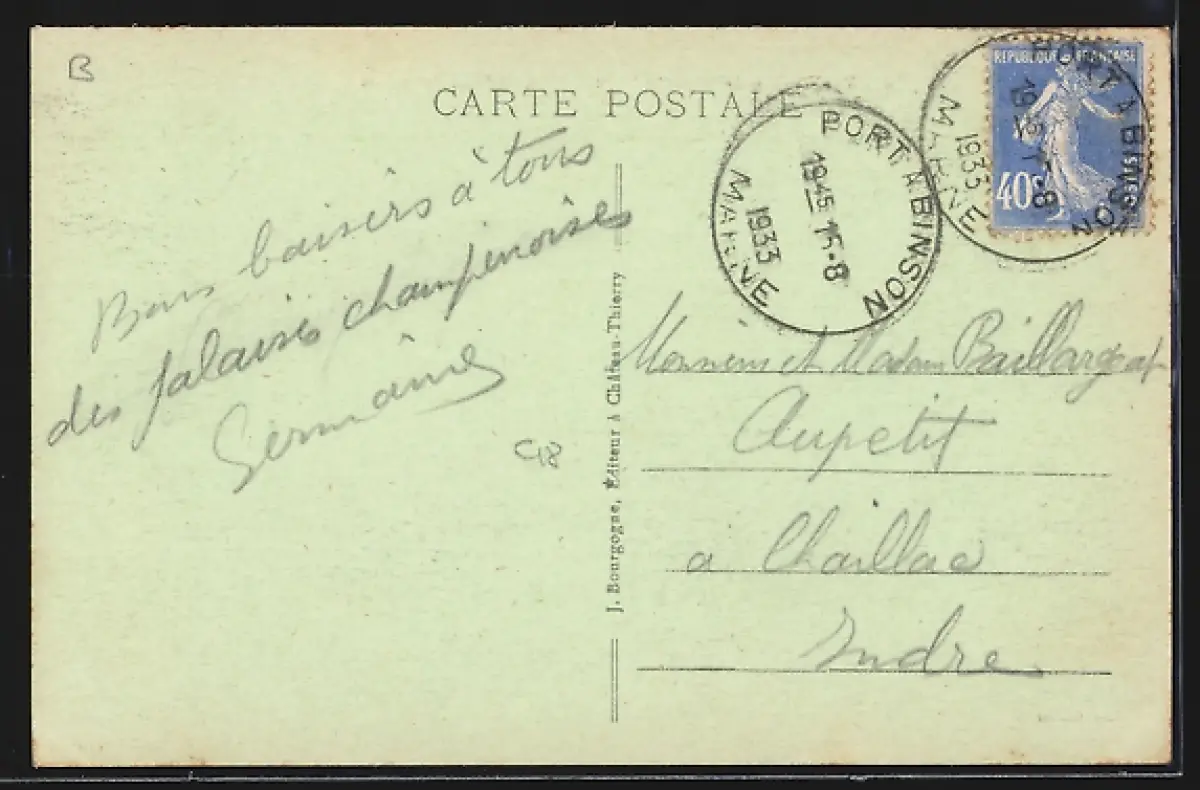 B
CARTE POSTALE
Bons baisers à tous
des falaises champenoises
Germaine
C18
J. Bourgogne, Éditeur à Château-Thierry
PORT A BINSON
1945 15-8
1933
MARNE
REPUBLIQUE FRANÇAISE
40c
POSTES
PORT A BINSON
1945 15-8
1933
MARNE
Monsieur et Madame
Aupetit
a Chaillac
Indre